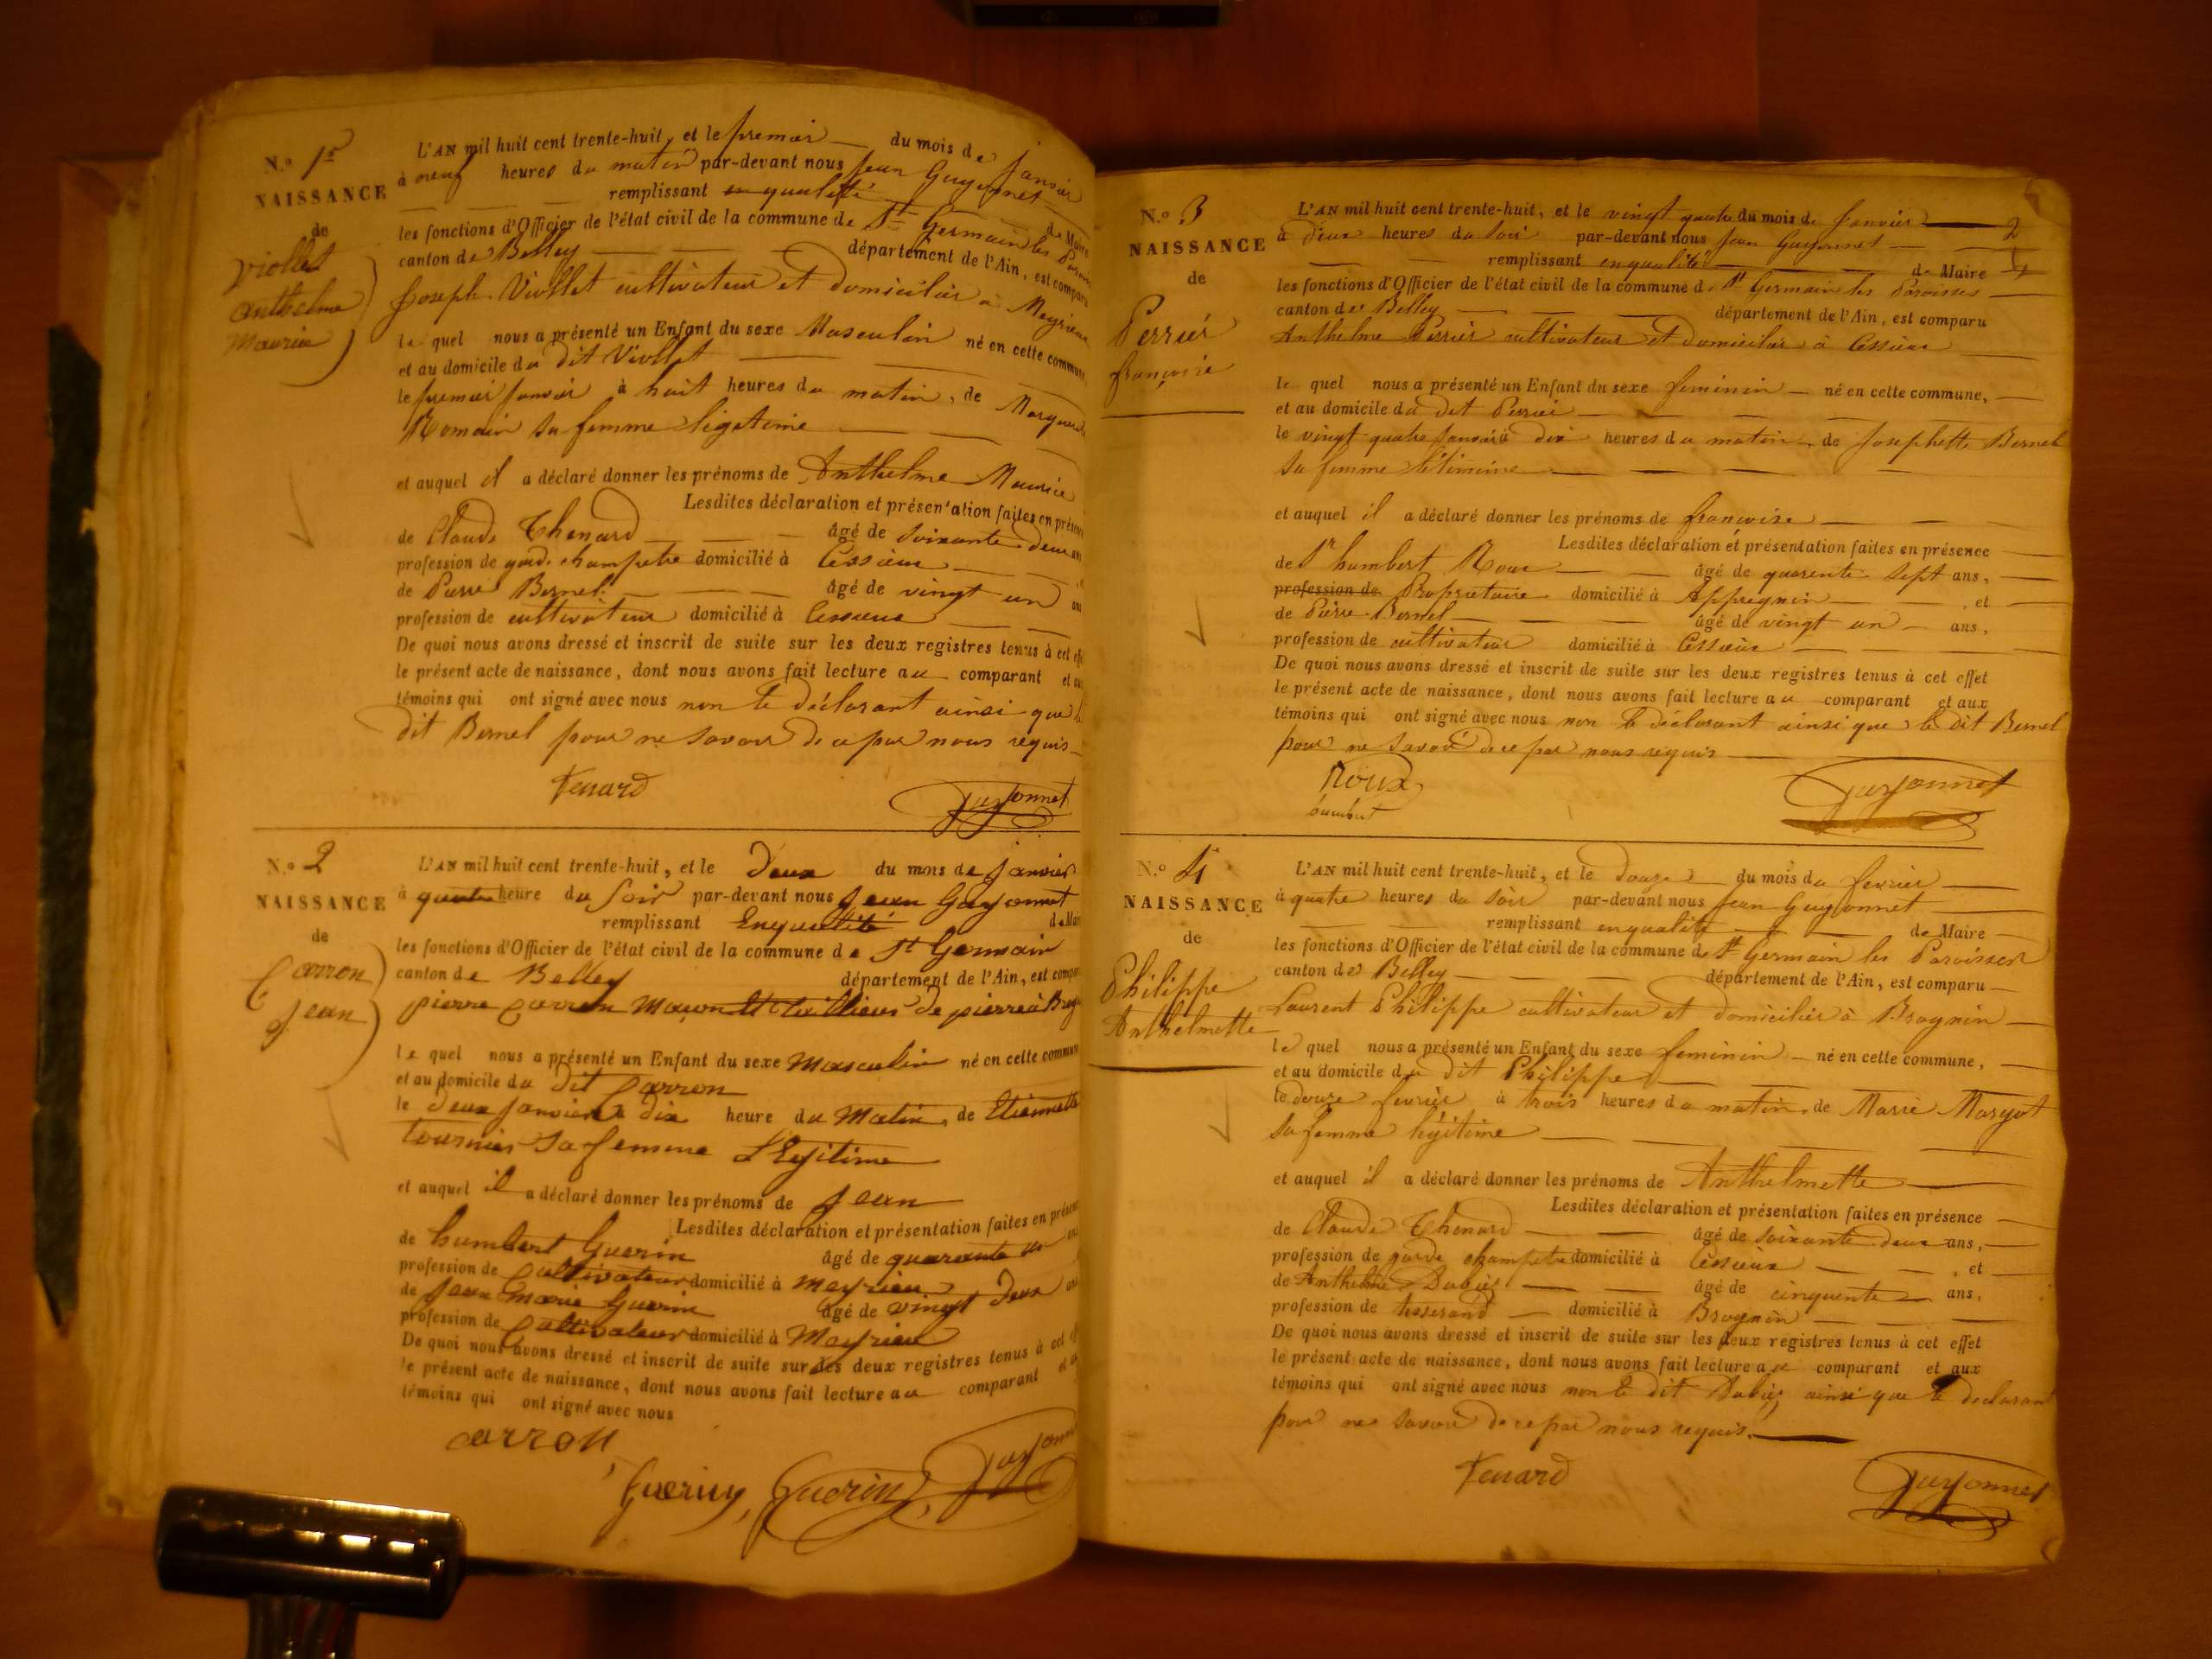 N.o 1er
NAISSANCE
de
Viollet
Anthelme
Maurice
L'AN mil huit cent trente-huit, et le premier du mois de Janvier
à neuf heures du matin par-devant nous Jean Guyonnet
remplissant en qualité de Maire
les fonctions d'Officier de l'état civil de la commune de St Germain les
canton de Belley département de l'Ain, est comparu
Joseph Viollet cultivateur et domicilié à Meyrieu
le quel nous a présenté un Enfant du sexe Masculin né en cette commune,
et au domicile du dit Viollet
le premier Janvier à huit heures du matin, de
Romain sa femme ligetime
et auquel il a déclaré donner les prénoms de Anthelme Maurice
Lesdites déclaration et présentation faites en présence
de Claude Thenard âgé de soixante deux ans
profession de garde champetre domicilié à Cessieux
de Pierre Bernel âgé de vingt un ans
profession de cultivateur domicilié à Cessieux
De quoi nous avons dressé et inscrit de suite sur les deux registres tenus à cet effe
le présent acte de naissance, dont nous avons fait lecture au comparant et au
témoins qui ont signé avec nous non le déclarant ainsi que le
dit Bernel pour ne savoir de ce par nous requis
Tenard
Guyonnet
N.o 2
NAISSANCE
de
Carron
Jean
L'AN mil huit cent trente-huit, et le Deux du mois de Janvier
à quatre heure du Soir par-devant nous Jean Guyonnet
remplissant Enqualité de Mai
les fonctions d'Officier de l'état civil de la commune de St Germain
canton de Belley département de l'Ain, est compa
pierre Carron Maçon Et tailleur de pierre à
le quel nous a présenté un Enfant du sexe Masculin né en cette commune
et au domicile du dit Carron
le deux Janvier à dix heure du Matin, de Etiennette
Tournier Sa femme LEgitime
et auquel il a déclaré donner les prénoms de Jean
Lesdites déclaration et présentation faites en présen
de humbert Guerin âgé de quarante
profession de Cultivateur domicilié à Meyrieu
de Jean Marie Guerin âgé de vingt deux ans
profession de Cultivateur domicilié à Meyrieu
De quoi nous avons dressé et inscrit de suite sur les deux registres tenus à cet eff
le présent acte de naissance, dont nous avons fait lecture au comparant et au
témoins qui ont signé avec nous
carron
Guerin, Guerin, Guyonn
2
N.o 3
NAISSANCE
de
Perrier
françoise
L'AN mil huit cent trente-huit, et le vingt quatre du mois de Janvier
à deux heures du soir par-devant nous Jean Guyonnet
remplissant en qualité de Maire
les fonctions d'Officier de l'état civil de la commune de St Germain les Paroisses
canton de Belley département de l'Ain, est comparu
Anthelme Perrier cultivateur et domicilié à Cessieux
le quel nous a présenté un Enfant du sexe feminin né en cette commune,
et au domicile du dit Perrier
le vingt quatre Janvier à dix heures du matin, de Josephette Bernel
sa femme
et auquel il a déclaré donner les prénoms de françoise
Lesdites déclaration et présentation faites en présence
de Sr humbert Roux âgé de quarente sept ans,
profession de Propriétaire domicilié à Appregnin, et
de Pierre Bernel âgé de vingt un ans,
profession de cultivateur domicilié à Cessieux
De quoi nous avons dressé et inscrit de suite sur les deux registres tenus à cet effet
le présent acte de naissance, dont nous avons fait lecture au comparant et aux
témoins qui ont signé avec nous non le déclarant ainsi que le dit Bernel
pour ne savoir de ce par nous requis
Roux
humbert
Guyonnet
N.o 4
NAISSANCE
de
Philippe
Anthelmette
L'AN mil huit cent trente-huit, et le douze du mois du fevrier
à quatre heures du soir par-devant nous Jean Guyonnet
remplissant en qualité de Maire
les fonctions d'Officier de l'état civil de la commune de St Germain les Paroisses
canton de Belley département de l'Ain, est comparu
Laurent Philippe cultivateur et domicilié à Brognin
le quel nous a présenté un Enfant du sexe feminin né en cette commune,
et au domicile du dit Philippe
le douze fevrier à trois heures du matin, de Marie Margot
sa femme légitime
et auquel il a déclaré donner les prénoms de Anthelmette
Lesdites déclaration et présentation faites en présence
de Claude Thenard âgé de soixante deux ans,
profession de garde champetre domicilié à Cessieux, et
de Anthelme Dubiez âgé de cinquente ans,
profession de tisserand domicilié à Brognin
De quoi nous avons dressé et inscrit de suite sur les deux registres tenus à cet effet
le présent acte de naissance, dont nous avons fait lecture au comparant et aux
témoins qui ont signé avec nous non le dit Dubiez ainsi que le declarant
pour ne savoir de ce par nous requis.
Tenard
Guyonnet